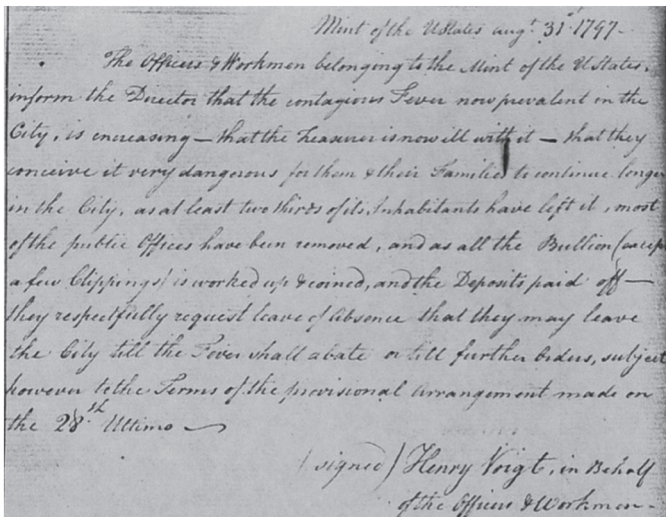 Mint of the UStates augt. 31st 1797-
The Officers & Workmen belonging to the Mint of the UStates,
inform the Director that the contagious Fever now prevalent in the
City, is encreasing — that the Treasurer is now ill with it — that they
conceive it very dangerous for them & their Families to continue longer
in the City, as at least two thirds of its Inhabitants have left it, most
of the public Offices have been removed, and as all the Bullion (excep
a few Clippings) is worked up & coined, and the Deposits paid off —
they respectfully request leave of Absence that they may leave
the City till the Fever shall abate or till further Orders, subject
however to the Terms of the provisional Arrangement made on
the 28th Ultimo —
(signed) Henry Voigt, in Behalf
of the Officers & Workmen-